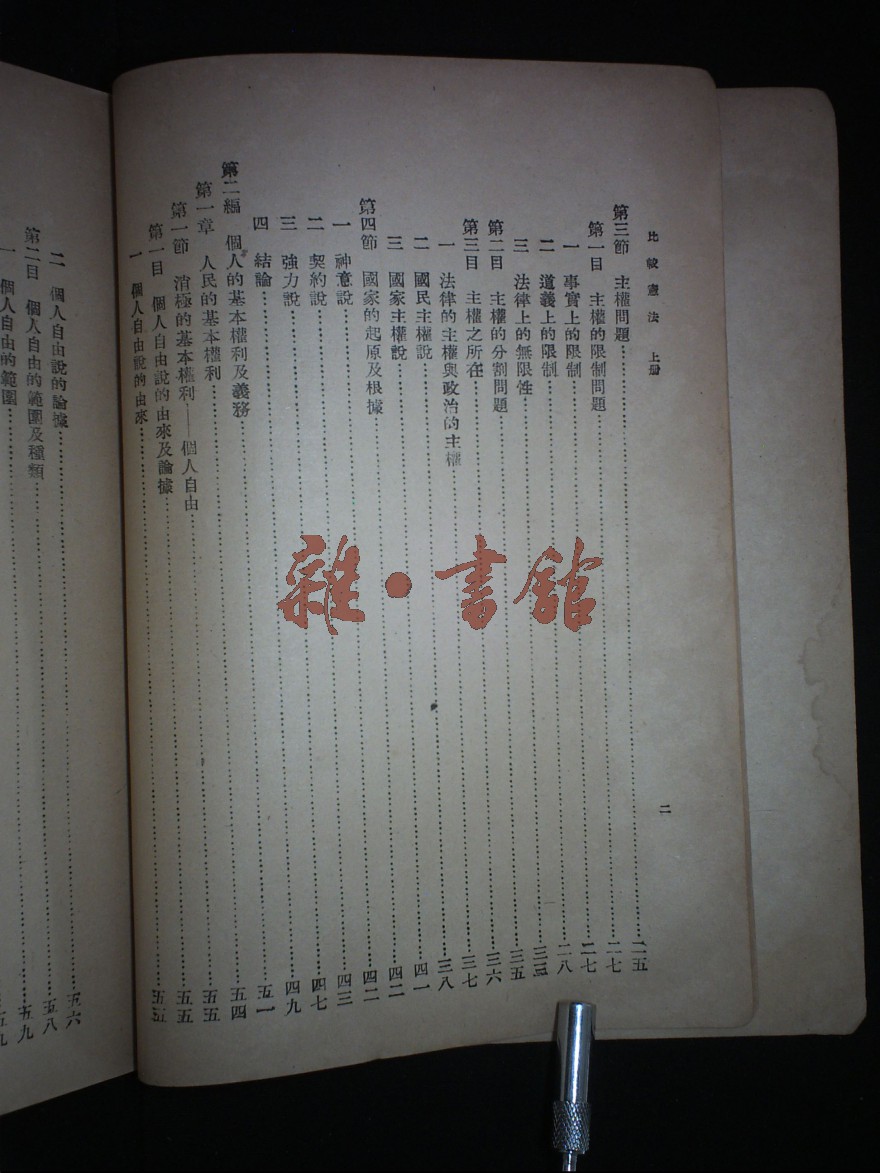 比較憲法 上冊
二
第三節 主權問題……二五
第一目 主權的限制問題……二七
一 事實上的限制……二七
二 道義上的限制……二八
三 法律上的無限性……三三
第二目 主權的分割問題……三五
第三目 主權之所在……三六
一 法律的主權與政治的主權……三七
二 國民主權說……三八
三 國家主權說……四一
第四節 國家的起原及根據……四二
一 神意說……四二
二 契約說……四三
三 強力說……四七
四 結論……四九
第二編 個人的基本權利及義務……五一
第一章 人民的基本權利……五四
第一節 消極的基本權利——個人自由……五五
第一目 個人自由說的由來及論據……五五
一 個人自由說的由來……五五
二 個人自由說的論據……五六
第二目 個人自由的範圍及種類……五八
一 個人自由的範圍……五九
雜·書館